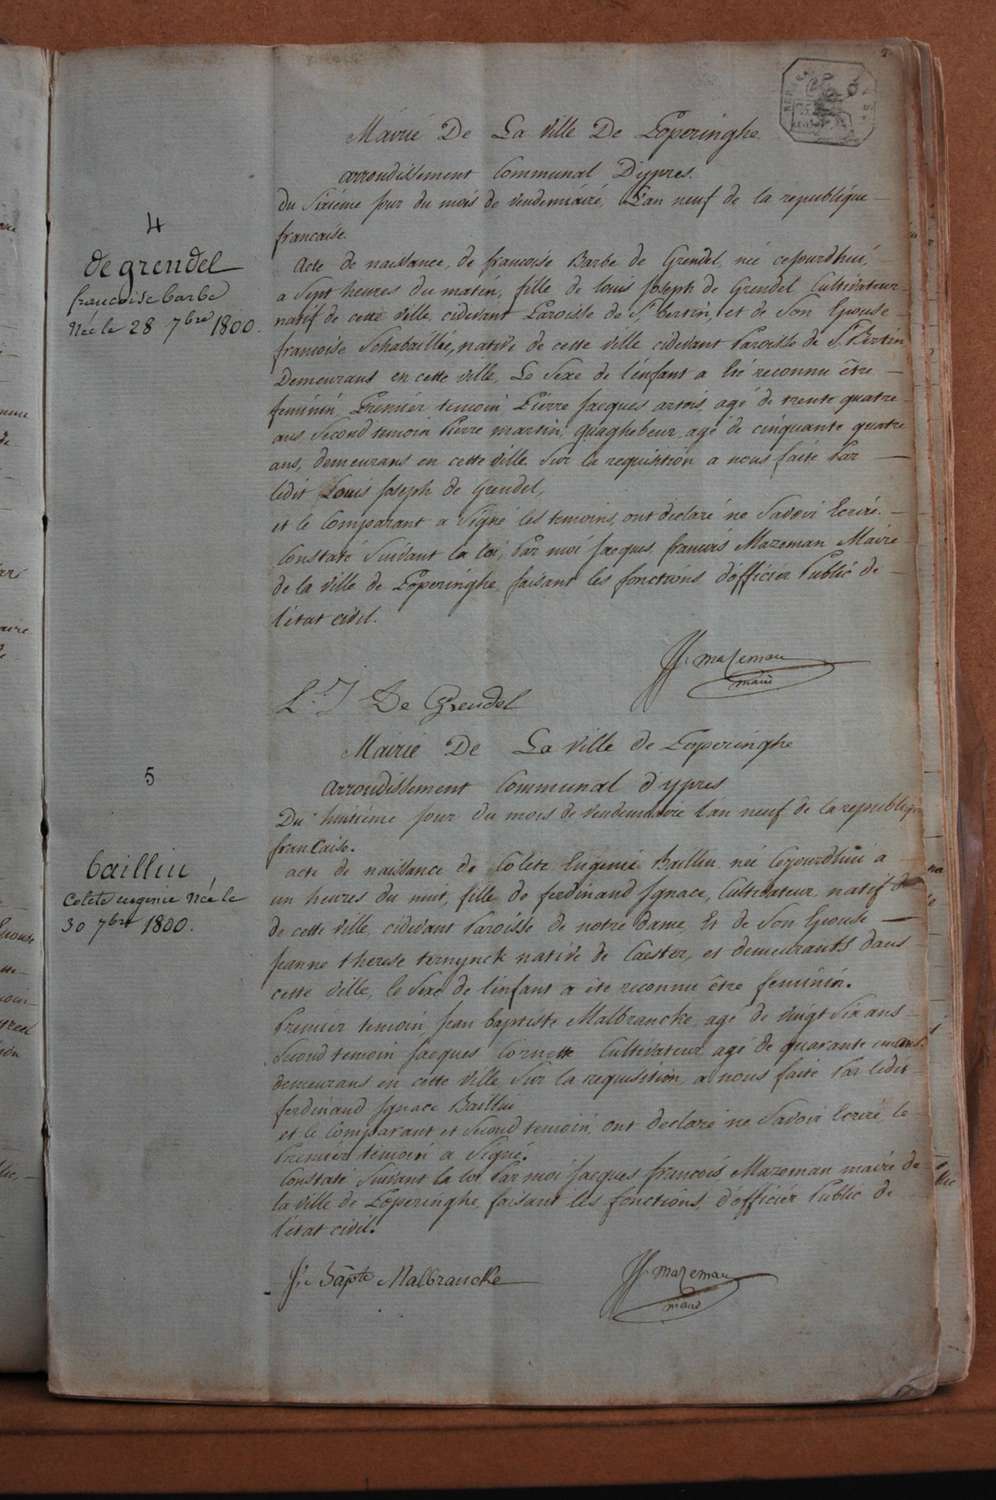 4
de grendel
francoise barbe
Née le 28 7bre 1800.
Mairie De La Ville De Poperinghe
arrondissement Communal D'ypres.
du Sixième jour du mois de vendemiaire, L'an neuf de la republique
francaise.
Acte de naissance, de francoise Barbe de Grendel, née cejourdhui,
a Sept heures du matin, fille de louis Joseph de Grendel Cultivateur
natif de cette ville cidevant Paroisse de St. bertin, et de Son Epouse
francoise Schabaillie, native de cette ville cidevant Paroisse de St. Bertin
Demeurans en cette ville, Le Sexe de l'enfant a été reconnu être
feminin, Premier temoin Pierre Jacques artois, agé de trente quatre
ans, Second temoin Pierre martin, quaghebeur, agé de cinquante quatre
ans, demeurans en cette ville Sur la requisition a nous faite Par
ledit Louis Joseph de Grendel,
et le Comparant a Signé les temoins, ont declaré ne Savoir Ecrire.
Constaté Suivant la loi, Par moi Jacques, francois Mazeman Maire
de la ville de Poperinghe, faisant les fonctions d'officier Public de
l'état civil.
JJ. Mazeman
maire
L. J De Grendel
5
baillin
Colete eugenie Née le
30 7bre 1800.
Mairie De La ville de Poperinghe
Arrondissement Communal d'ypres
Du huitième jour du mois de vendemiaire l'an neuf de la republique
francaise.
acte de naissance de Colete Eugenie Baillin née Cejourdhui a
un heures du nuit, fille de ferdinand Ignace, Cultivateur natif de
de cette ville, cidevant Paroisse de notre dame, Et de Son Epouse
jeanne therese ternynck native de Caester, et demeurants dans
cette ville, le Sexe de l'enfant a été reconnu être feminin.
Premier temoin, jean baptiste Malbrancke agé de vingt Six ans
Second temoin Jacques Cornette Cultivateur agé de quarante ans
demeurans en cette ville Sur la requisition, a nous faite Par ledit
ferdinand Ignace Baillin
et le Comparant et Second temoin, ont declaré ne Savoir Ecrire le
Premier temoin a Signé.
Constaté Suivant la loi Par moi Jacques francois Mazeman maire de
la ville de Poperinghe, faisant les fonctions, d'officier Public de
l'état civil.
J. Bapte Malbrancke
JJ. Mazeman
maire